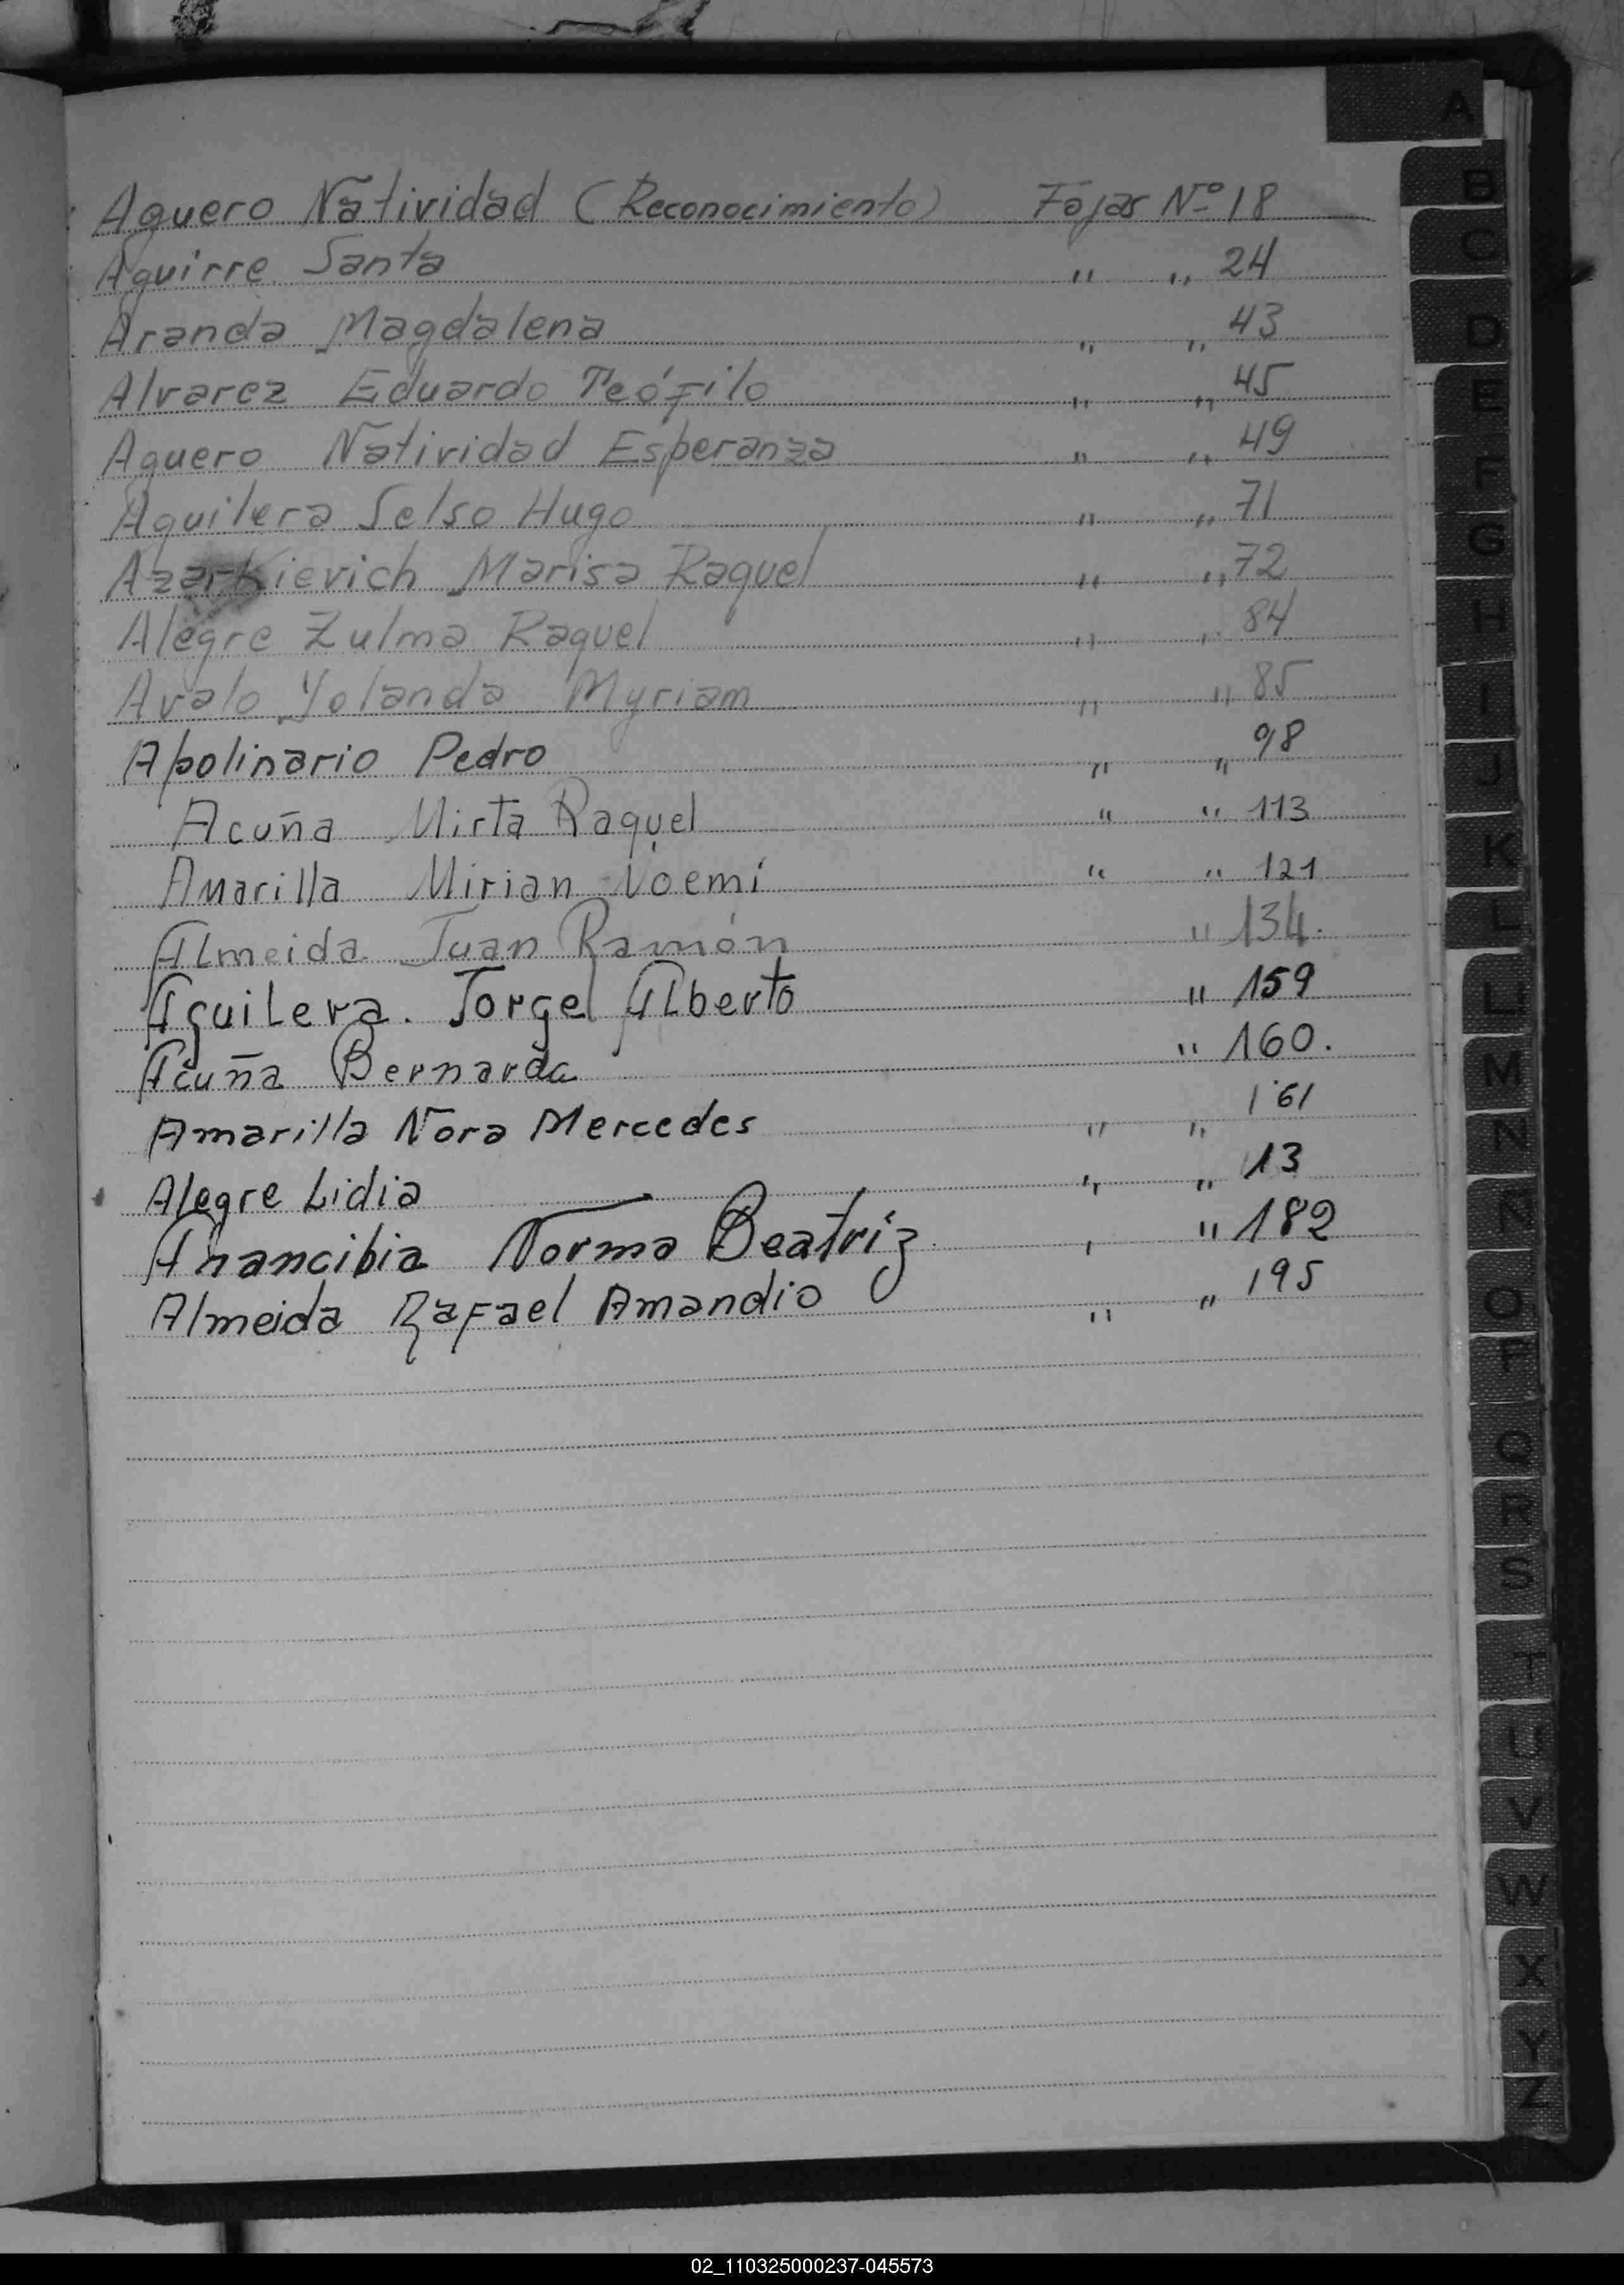 A
Aguero Natividad (Reconocimiento) Fojas Nº 18
Aguirre Santa " " 24
Aranda Magdalena " " 43
Alvarez Eduardo Teófilo " " 45
Aguero Natividad Esperanza " " 49
Aguilera Selso Hugo " " 71
Azarkievich Marisa Raquel " " 72
Alegre Zulma Raquel " " 84
Avalo Yolanda Myriam " " 85
Apolinario Pedro " " 98
Acuña Mirta Raquel " " 113
Amarilla Mirian Noemí " " 121
Almeida Juan Ramón " 134.
Aguilera. Jorgel Alberto " 159
Acuña Bernarda " 160.
Amarilla Nora Mercedes " " 161
Alegre Lidia " " 13
Anancibia Norma Beatriz " " 182
Almeida Rafael Amandio " " 195
B
C
D
E
F
G
H
I
J
K
L
L
M
N
Ñ
O
P
Q
R
S
T
U
V
W
X
Y
Z
02_110325000237-045573